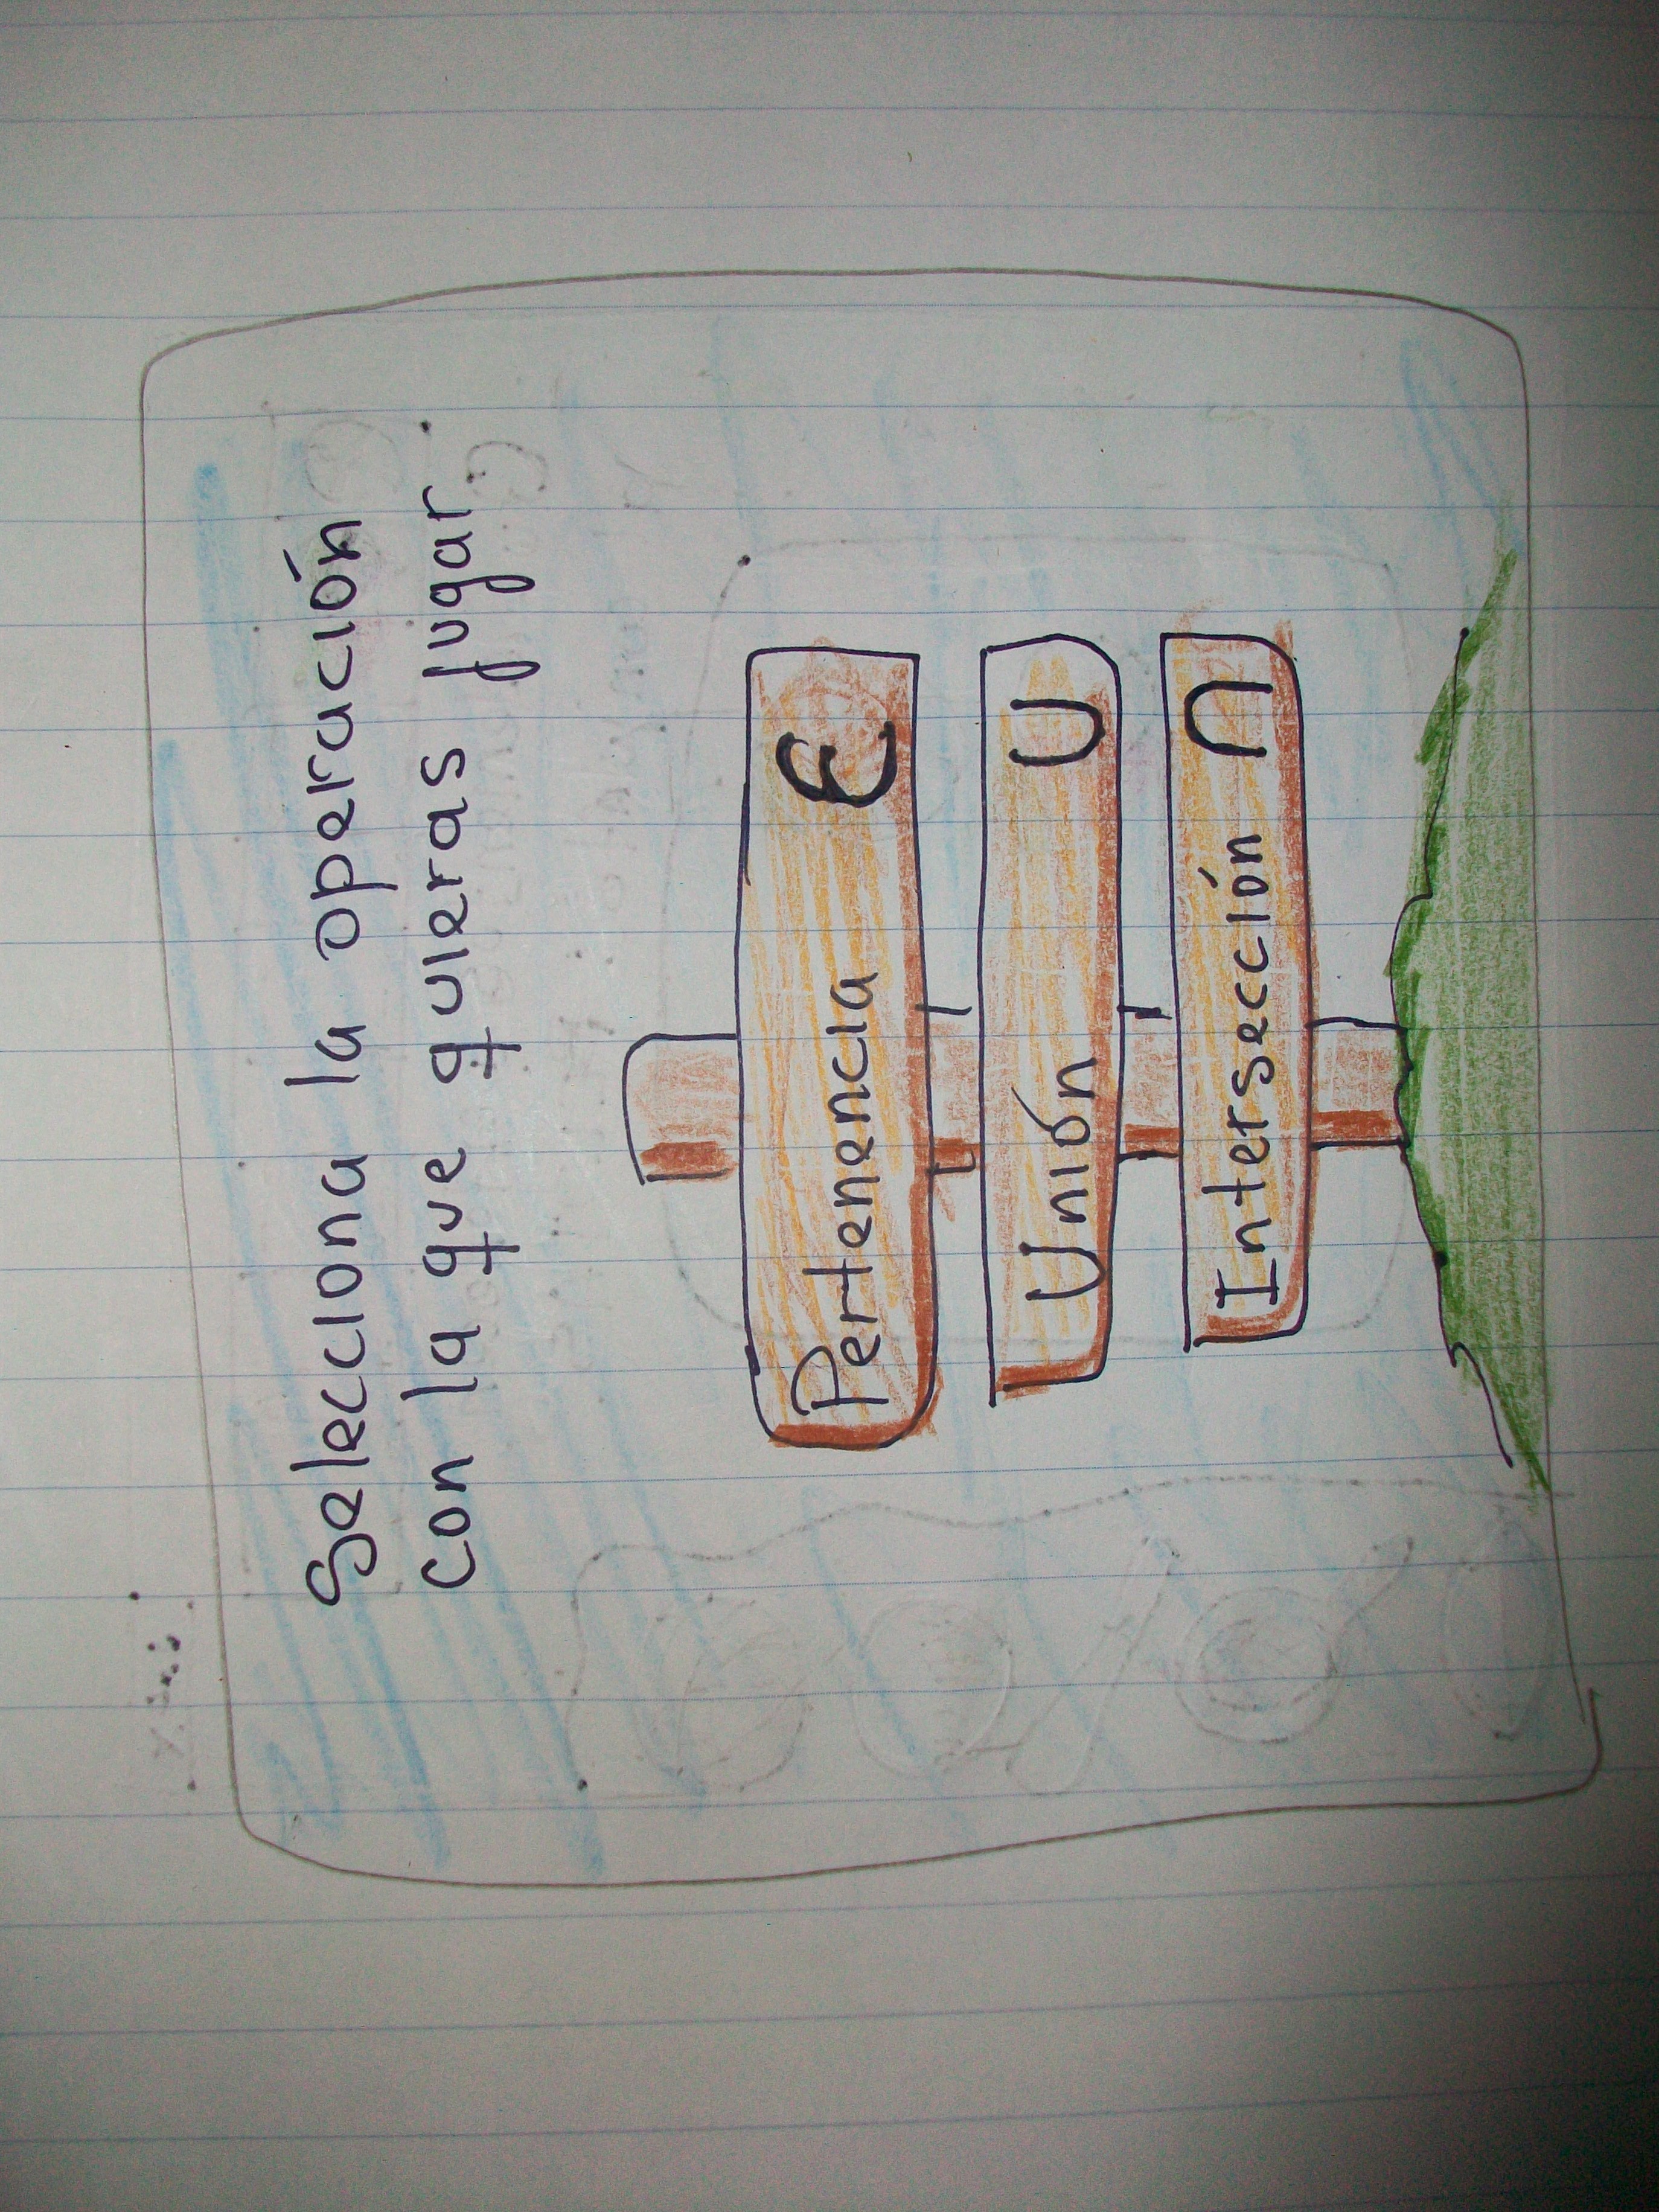 Selecciona la operación
con la que quieras jugar.
Pertenencia ∈
Unión U
Intersección ∩